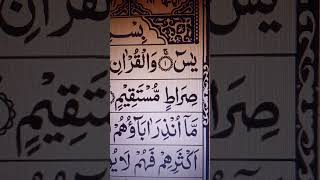 بِسْ
يٰسٓ ۝١ وَالْقُرْاٰنِ
صِرَاطٍ مُّسْتَقِيْمٍ
مَّاۤ اُنْذِرَ اٰبَآؤُهُمْ
اَكْثَرِهِمْ فَهُمْ لَا يُ